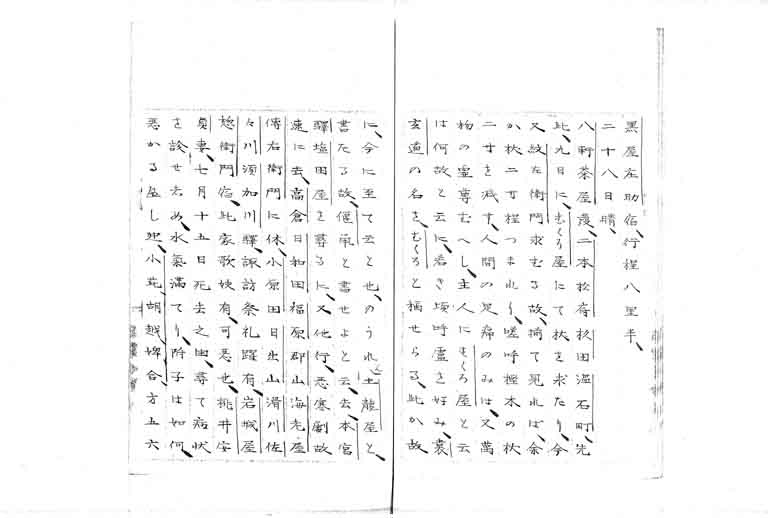 黒屋庄助宿、行程八里半、
二十八日晴、
八軒茶屋、二本松府杉田温石町、先
此九日に、むくろ屋にて杖を求たり、今
又紋左衛門求むる故、揃て見れば、余
か杖二寸程つまれり、嗟呼樫木の杖
二寸を減す、人間の足痛のみは、又萬
物の霊尊むへし、主人にむくろ屋と云
は何故と云に、若き頃時盧を好み、裳
玄道の名をむくろと稱せらる、此か故
に、今に至て云と也、のうれ土龍屋と、
書たる故、偃鼠と書せよと云去、本宮
驛塩田屋を尋るに、又他行、悪寒劇故
速に去、高倉日和田福原郡山海老屋
傳右衛門に休、小原田日出山滑川佐
々川須加川驛、諏訪祭礼躍有、岩城屋
惣衛門宿、此家歌妓有、可悪也、桃井安
貞妻、七月十五日死去之由、尋て病状
を診せしめ、水氣満てり、附子は如何、
悪かる屋し也、小菟胡越婢合方五六